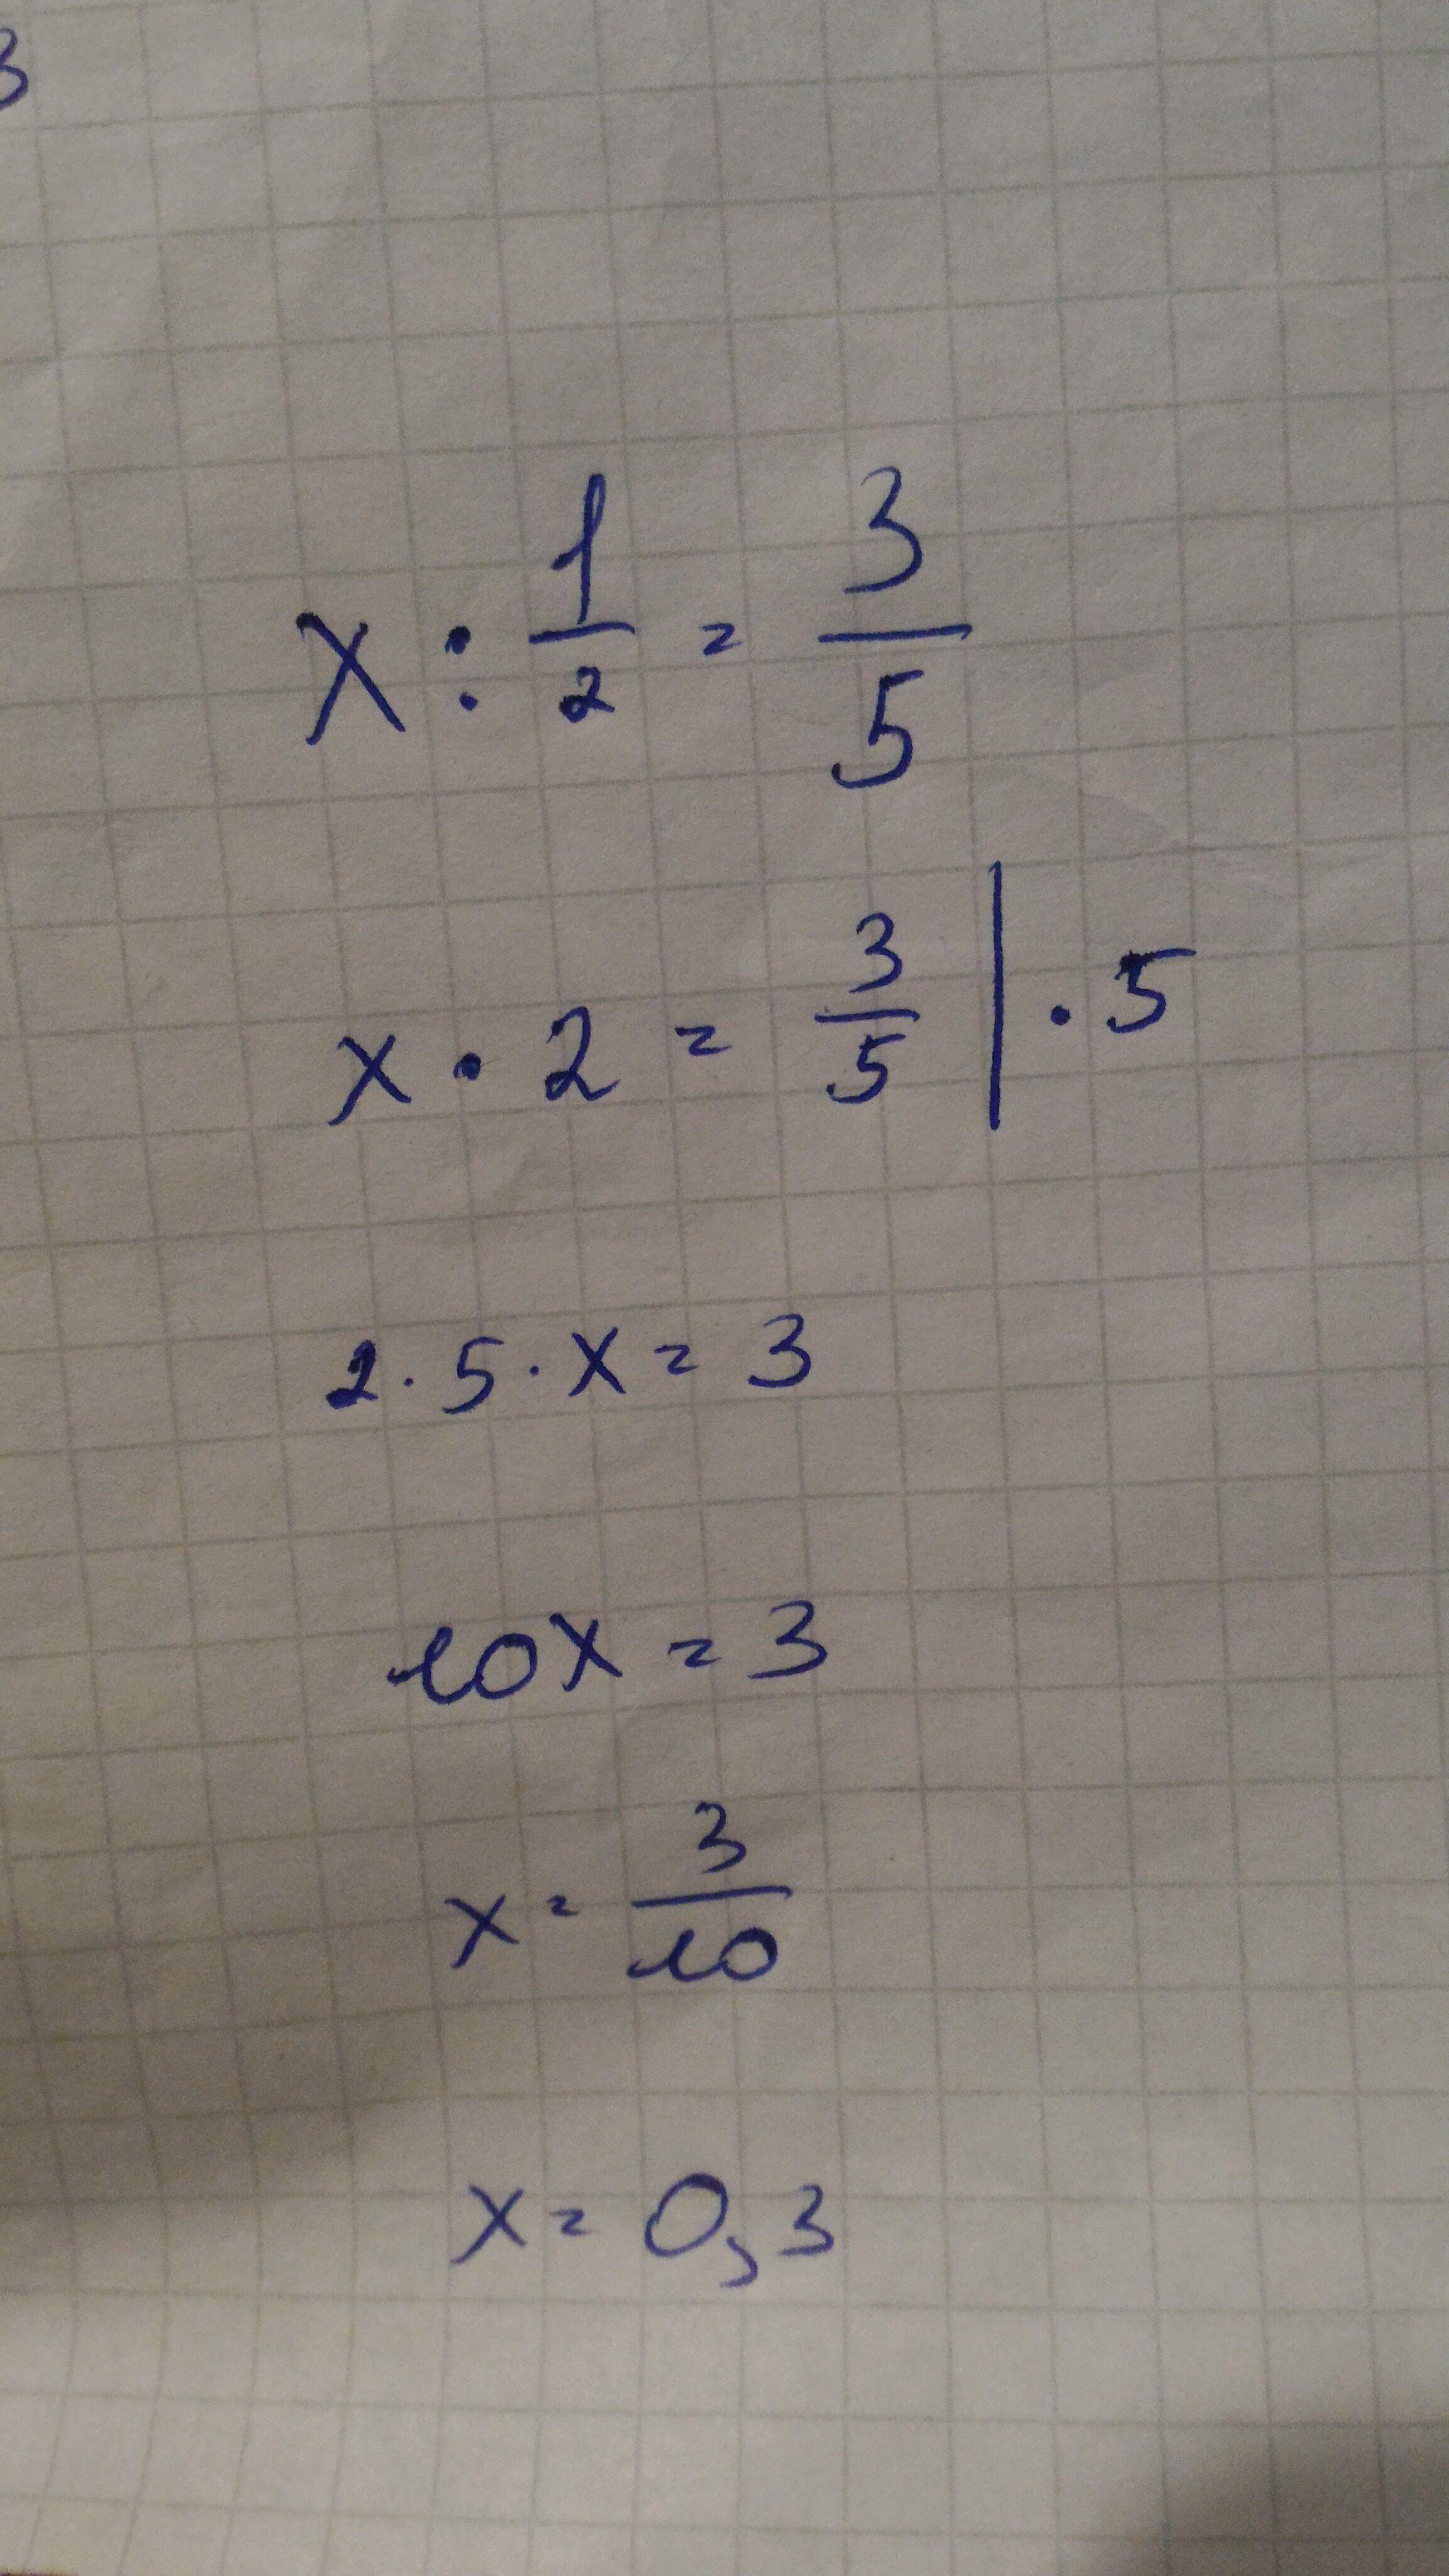 3
x : 1/2 = 3/5
x · 2 = 3/5 | · 5
2 · 5 · x = 3
10x = 3
x = 3/10
x = 0,3